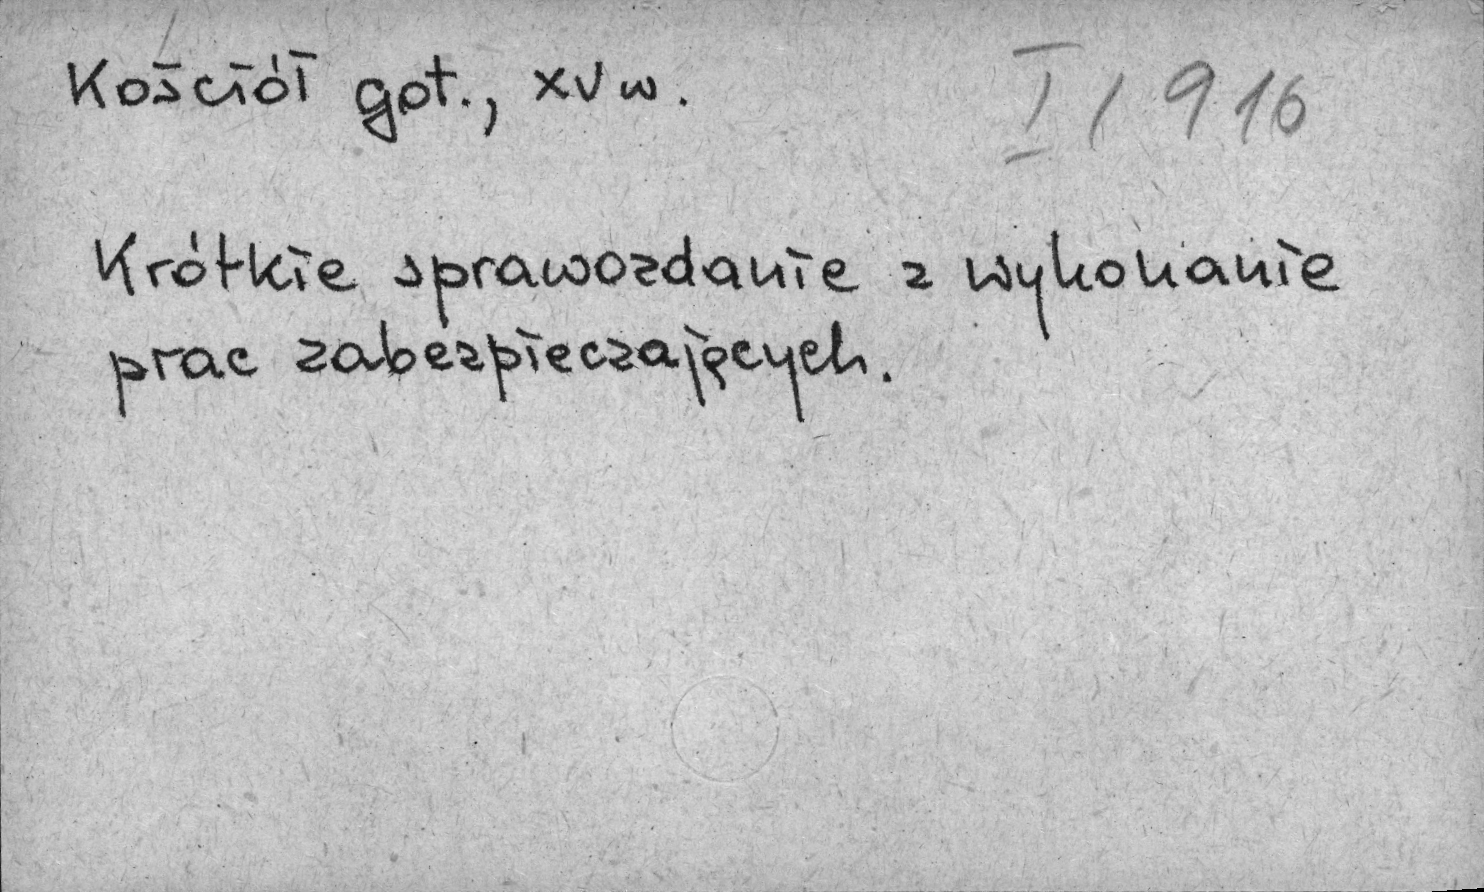 Kościół got., XV w. I/916
Krótkie sprawozdanie z wykonanie
prac zabezpieczających.